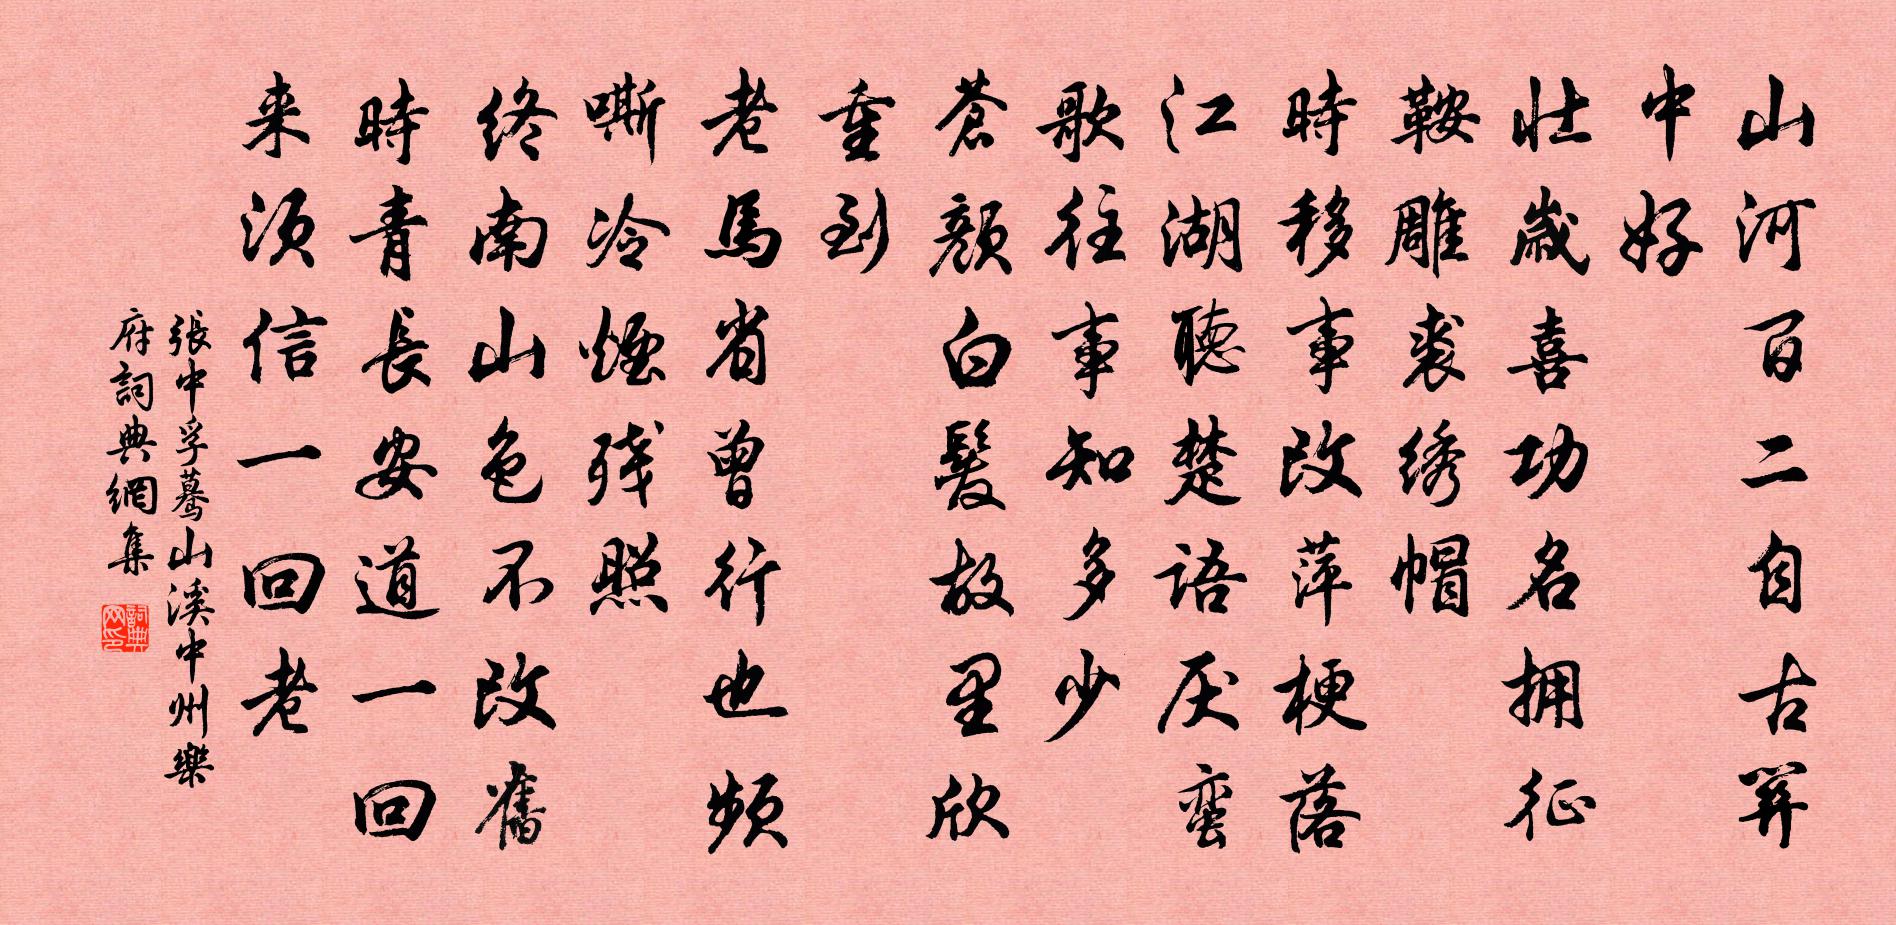 山河百二自古關
中好
壯歲喜功名拥征
鞍雕裘绣帽
時移事改萍梗落
江湖聽楚語厌蛮
歌往事知多少
苍顏白髮故里欣
重到
老馬省曾行也頻
嘶冷煙残照
终南山色不改舊
時青長安道一回
来須信一回老
張中孚蓦山溪中州樂
府詞典網集
詞典网印